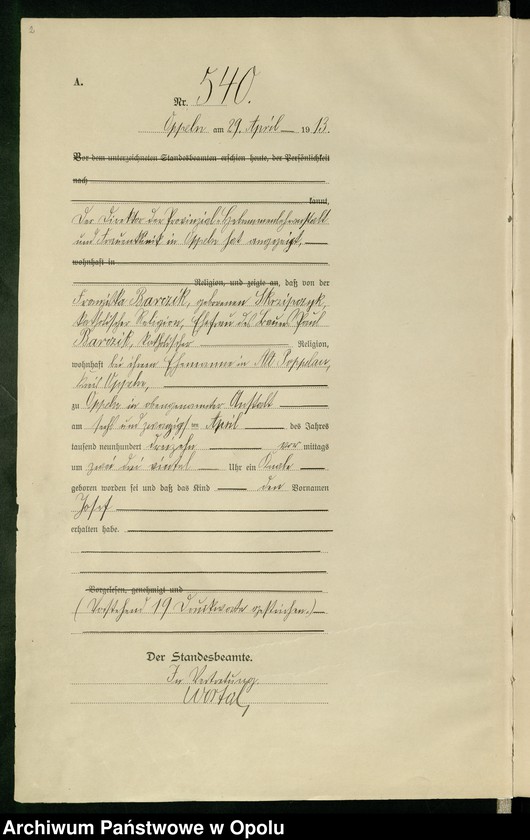 2
A.
Nr. 540.
Oppeln am 29. April 1913.
Vor dem unterzeichneten Standesbeamten erschien heute, der Persönlichkeit
nach
kannt,
Der Direktor der Provinzial-Hebammenlehranstalt
und Frauenklinik in Oppeln hat angezeigt,
wohnhaft in
Religion, und zeigte an, daß von der
Franziska Barczik, geborenen Skrzipczyk,
katholischer Religion, Ehefrau des Paul
Barczik, katholischer Religion,
wohnhaft bei ihrem Ehemanne in Alt Poppelau,
Kreis Oppeln,
zu Oppeln in obengenannter Anstalt
am sechs und zwanzigsten April des Jahres
tausend neunhundert dreizehn vor mittags
um zwei drei viertel Uhr ein Knabe
geboren worden sei und daß das Kind den Vornamen
Josef
erhalten habe.
Vorgelesen, genehmigt und
(Vorstehend 19 Druckworte gestrichen.)
Der Standesbeamte.
In Vertretung.
Archiwum Państwowe w Opolu